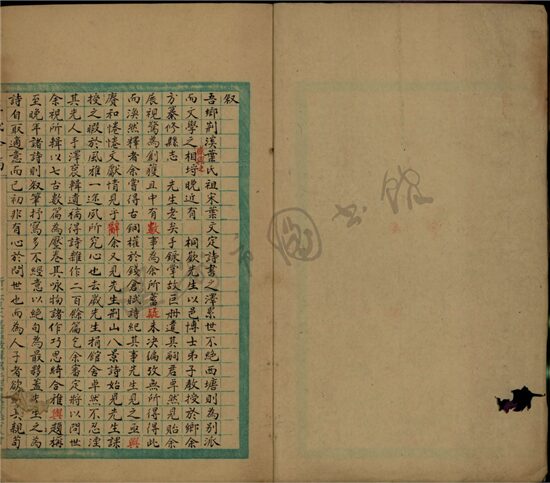 叙
吾鄉荆溪葉氏祖宋葉文定詩書之澤累世不絕西塘則為別派
而文學之相埒晚近有 桐歗先生以邑博士弟子教授於鄉余
方纂修縣志 先生老矣手錄掌故巨冊遺其嗣君卓然見貽余
展視驚為創獲且中有數事為余所蓄疑未決徧攷無所得得此
而渙然釋者余嘗得古銅權於錢倉賦詩紀其事先生見之亟與
賡和惓惓文獻情見于辭余又見先生荆山八景詩始見先生課
授之暇於風雅一道夙所究心也去歲先生捐館舍卓然不忍湮
其先人手澤裒輯遺稿得詩雜作二百餘篇乞余審定將以問世
余視所輯以七古數篇為壓卷其咏物諸作巧思綺合雅與題稱
至晚年諸詩則叙筆抒寫多不經意以絕句為最夥蓋先生之為
詩自取適意而已初非有心於問世也而為人子者欲其親苟
圖書館